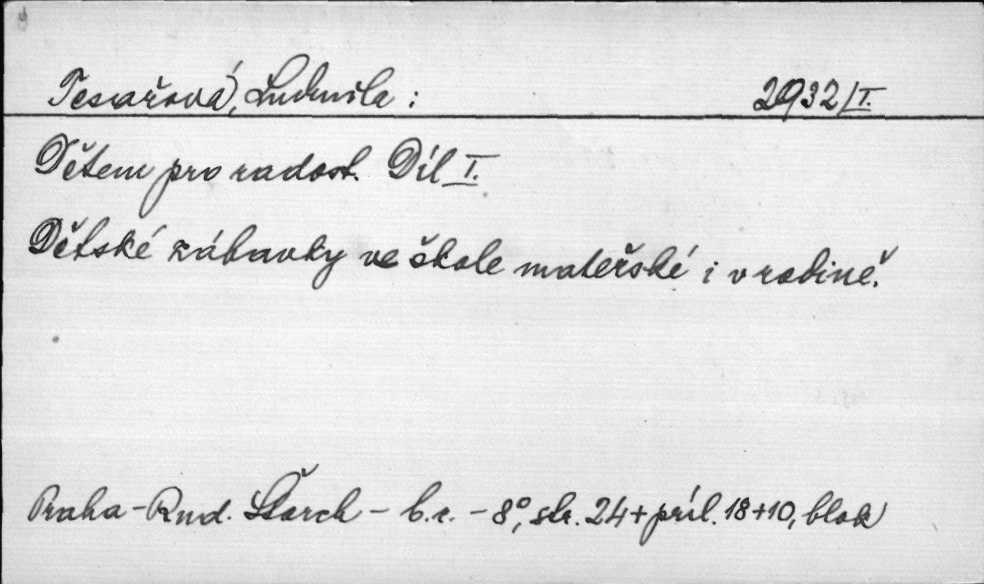 Tesařová, Ludmila: 2932/I.
Dětem pro radost. Díl I.
Dětské zábavky ve škole mateřské i v rodině.
Praha - Rud. Štorch - b.r. - 8°, str. 24 + príl. 18+10, blok